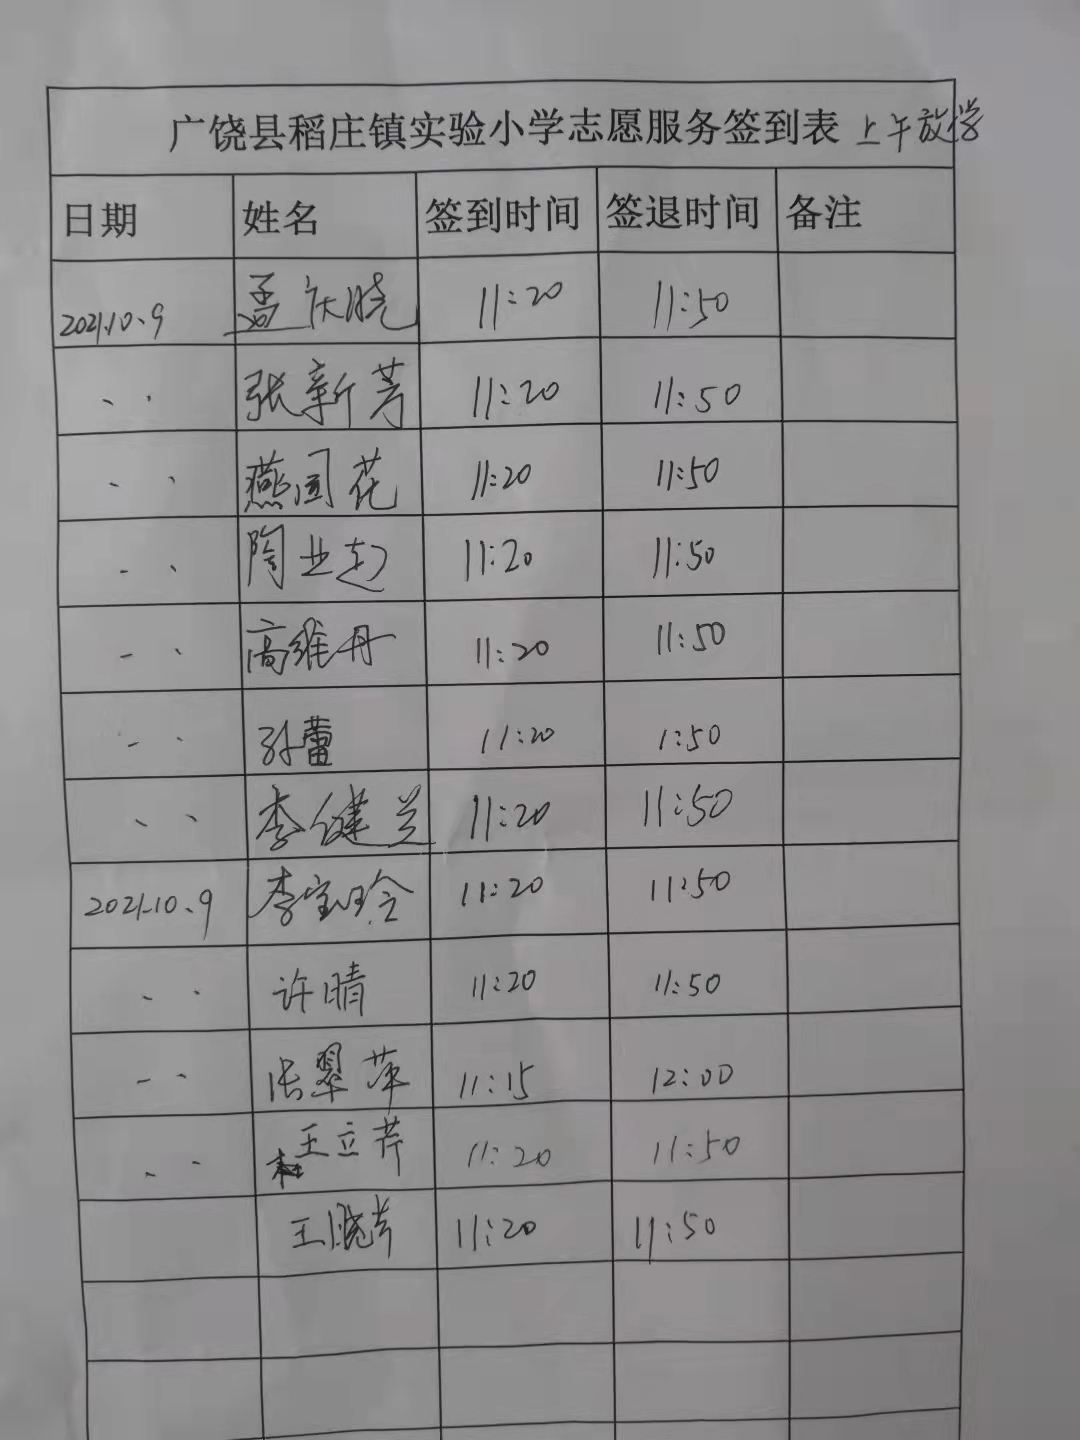 广饶县稻庄镇实验小学志愿服务签到表 上午放学
日期 姓名 签到时间 签退时间 备注
2021.10.9 孟庆晓 11:20 11:50
、、 张新芳 11:20 11:50
、、 燕国花 11:20 11:50
、、 陶业起 11:20 11:50
、、 高维丹 11:20 11:50
、、 孙蕾 11:20 1:50
、、 李健兰 11:20 11:50
2021.10.9 李宝玲 11:20 11:50
、、 许晴 11:20 11:50
、、 张翠萍 11:15 12:00
、、 王立芹 11:20 11:50
王晓芳 11:20 11:50